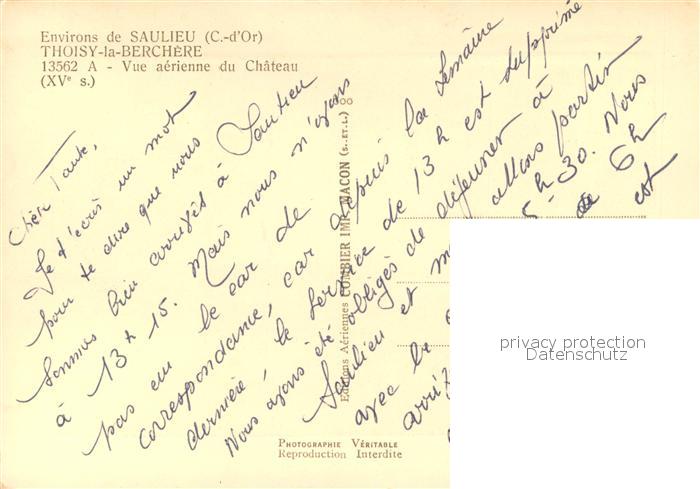 Environs de SAULIEU (C.-d'Or)
THOISY-la-BERCHÈRE
13562 A - Vue aérienne du Château
(XVe s.)
Chère Tante,
Je t'écris un mot
pour te dire que nous
sommes bien arrivés à Saulieu
à 13h 15. Mais nous n'avons
pas eu le car de
correspondance, car depuis la semaine
dernière, le service de 13 h est supprimé
Nous avons été obligés de déjeuner à
Saulieu et allons partir
avec le 5h 30. Nous
6h
est
Editions Aériennes COMBIER IMP. MACON (S.-ET-L.)
PHOTOGRAPHIE VÉRITABLE
Reproduction Interdite
privacy protection
Datenschutz